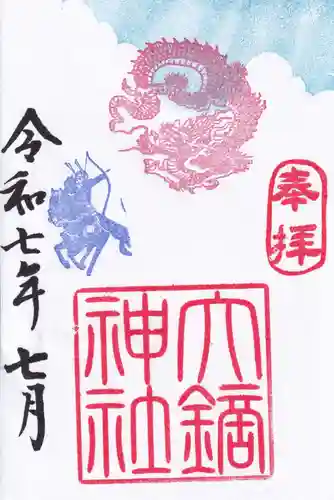 奉拝
六鏑
神社
令和七年七月